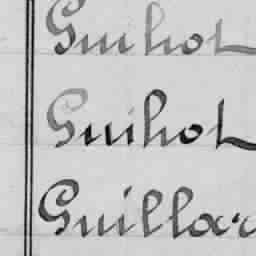 Guihot
Guihot
Guillar